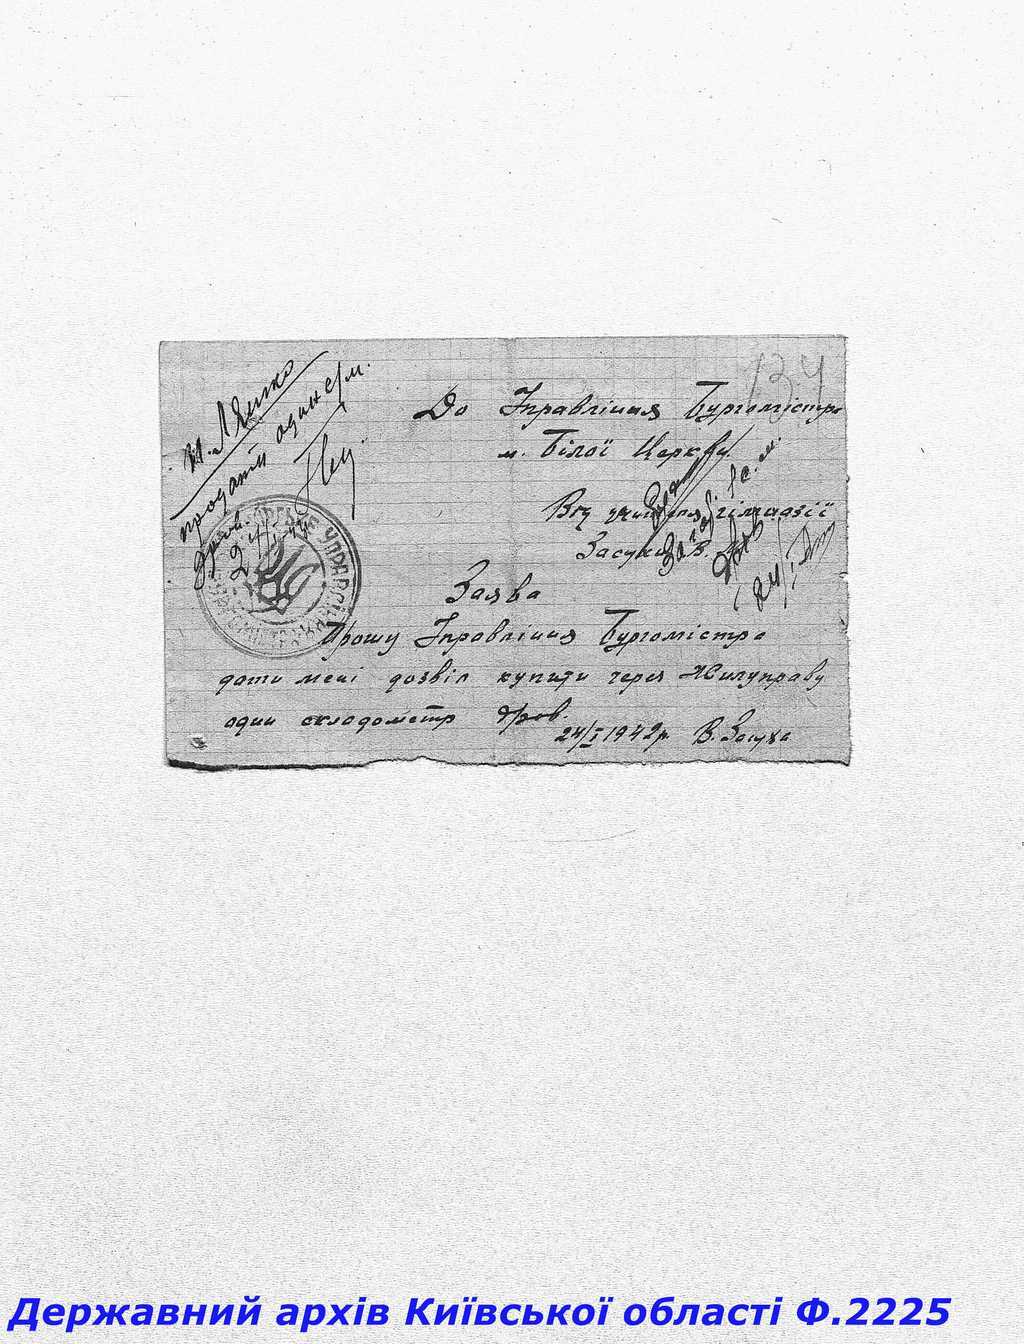 134
До Управління Бургомістра
м. Білої Церкви
Від учителя гімназії
Засухи В.
Заява
Прошу Управління Бургомістра
дати мені дозвіл купити через Жилуправу
один складометр дров.
24/I 1942р. В. Засуха
продати один с/м.
дров.
24/I
Державний архів Київської області Ф.2225